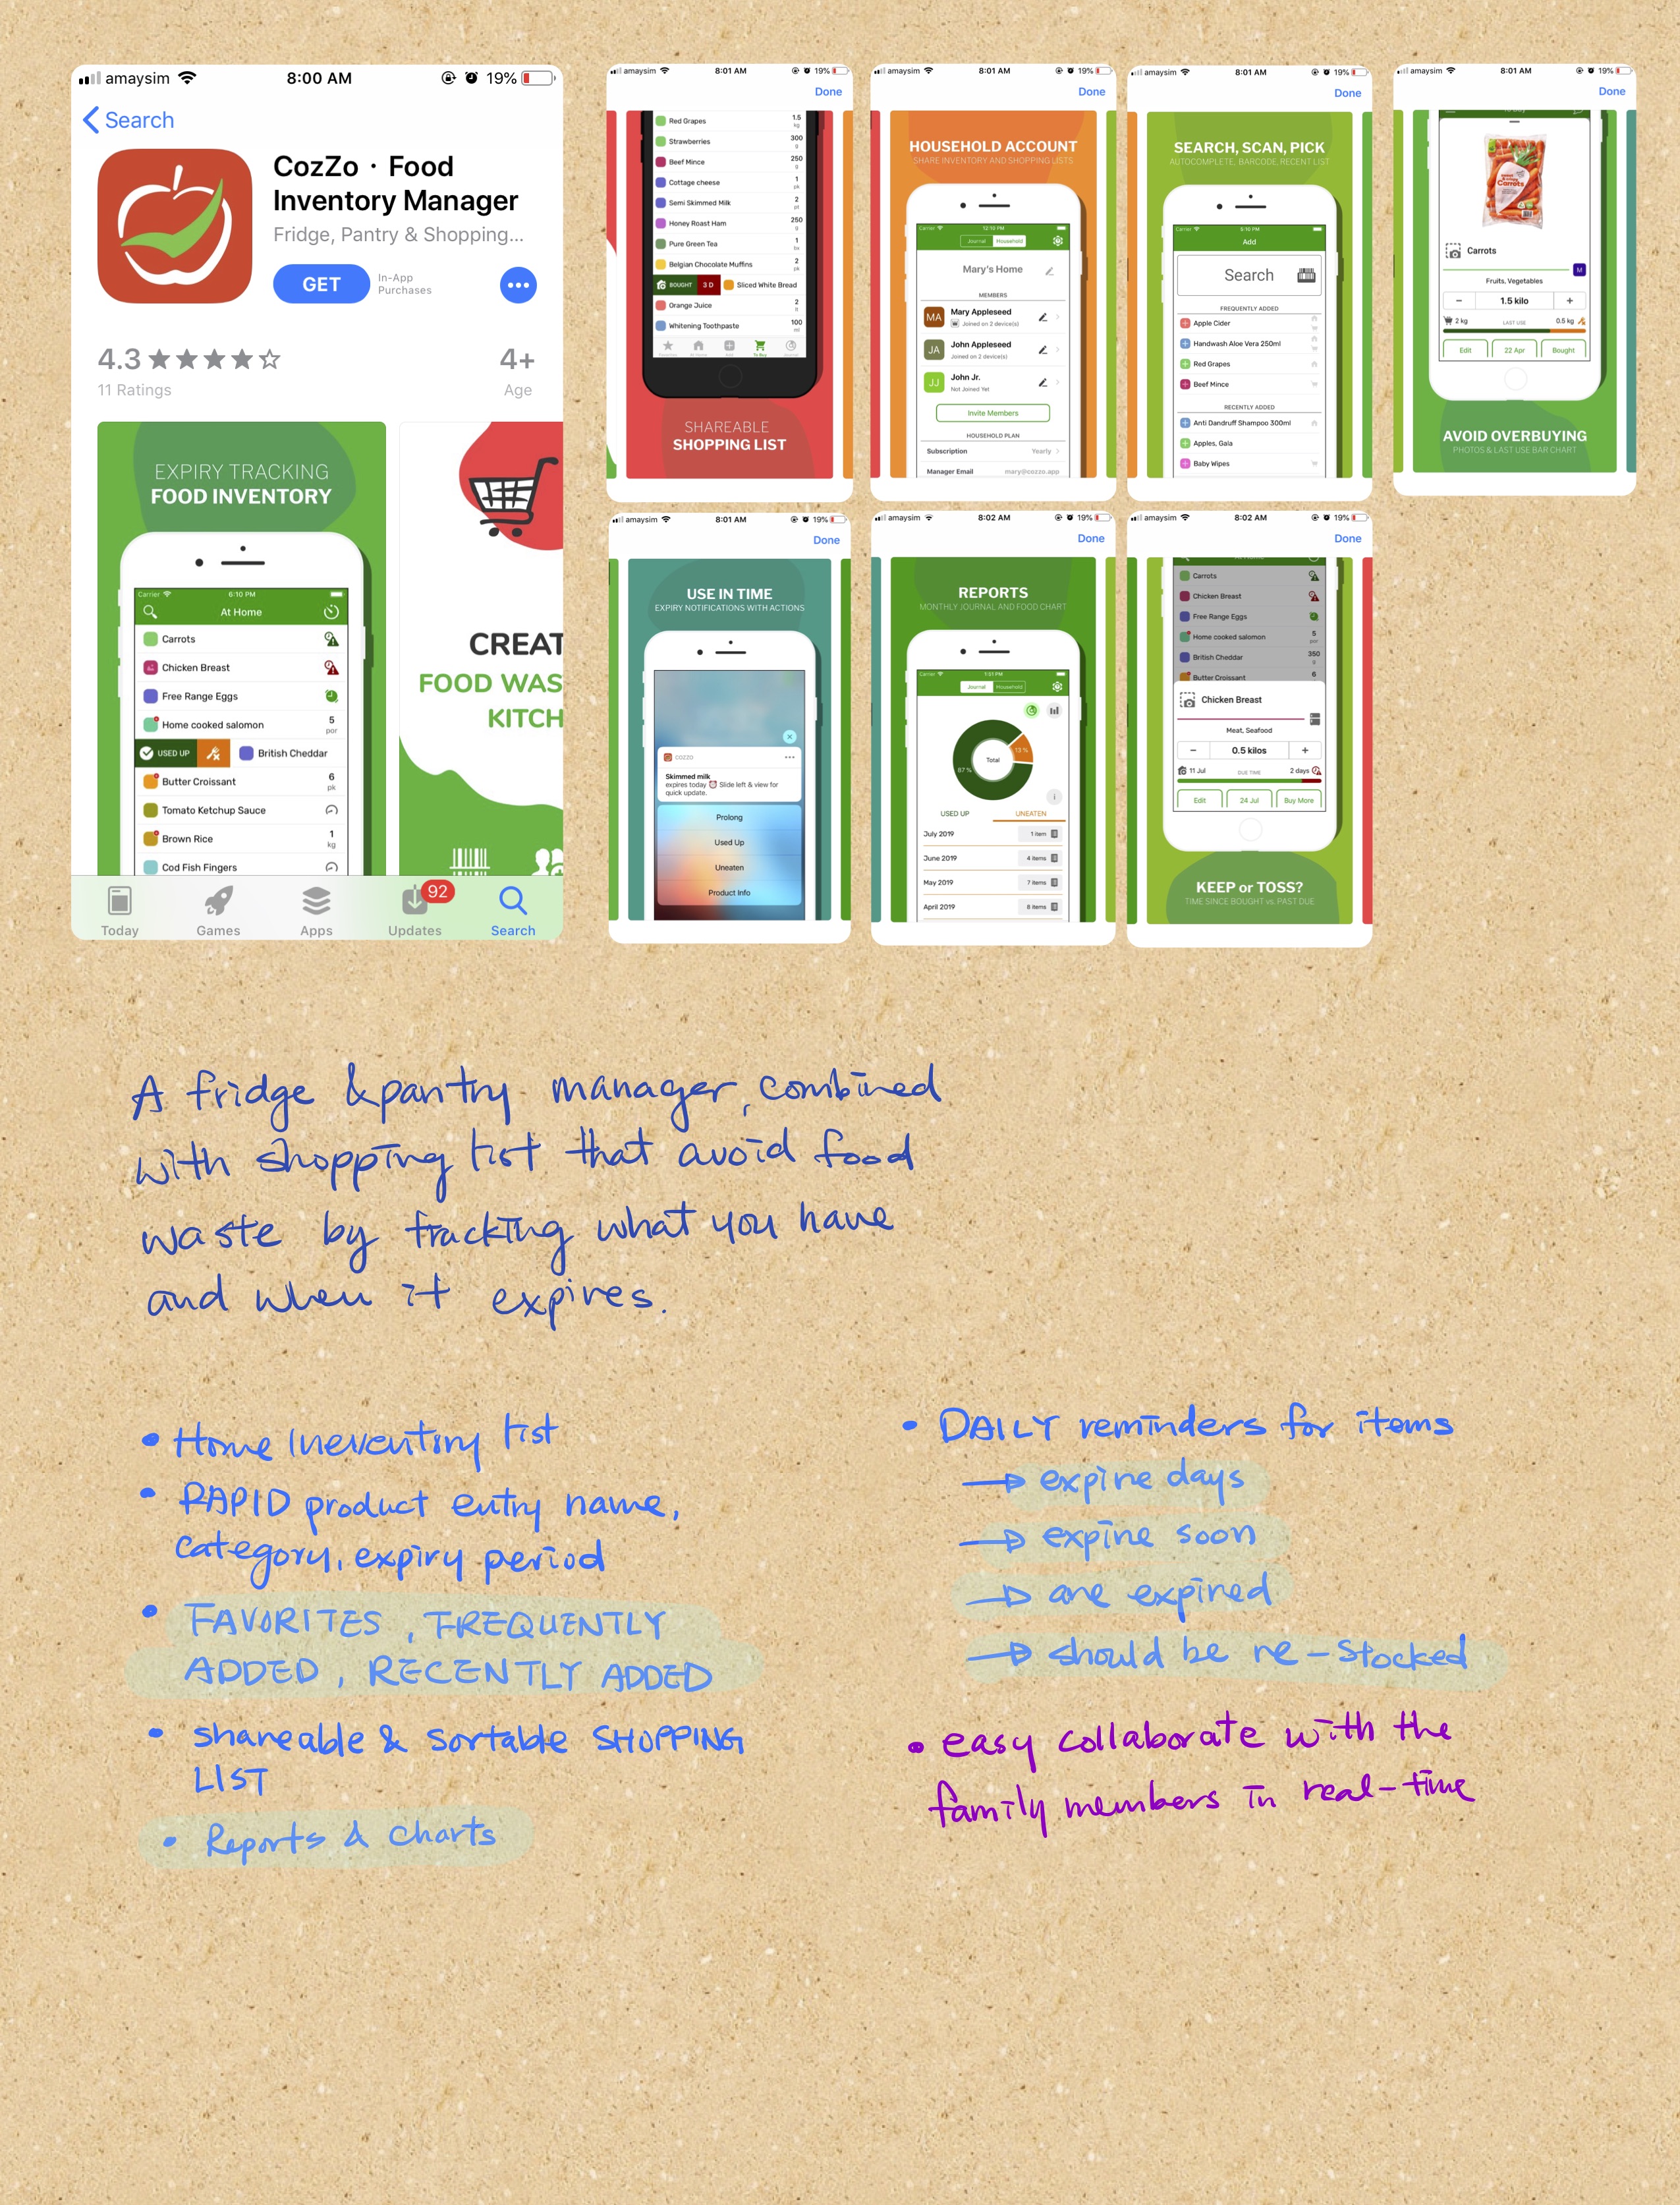 amaysim 8:00 AM 19%
Search
CozZo · Food
Inventory Manager
Fridge, Pantry & Shopping...
GET
In-App
Purchases
4.3
11 Ratings
4+
Age
EXPIRY TRACKING
FOOD INVENTORY
Carrier 6:10 PM
At Home
Carrots
Chicken Breast
Free Range Eggs
Home cooked salomon 5
por
USED UP British Cheddar
Butter Croissant 6
pk
Tomato Ketchup Sauce
Brown Rice 1
kg
Cod Fish Fingers
CREAT
FOOD WAS
KITCH
92
Today Games Apps Updates Search
amaysim 8:01 AM 19%
Done
Red Grapes 1.5
kg
Strawberries 300
g
Beef Mince 250
g
Cottage cheese 1
pk
Semi Skimmed Milk 2
Honey Roast Ham 250
g
Pure Green Tea 1
Belgian Chocolate Muffins 2
pk
BOUGHT 3 D Sliced White Bread
Orange Juice 2
Whitening Toothpaste 100
ml
To Buy
SHAREABLE
SHOPPING LIST
amaysim 8:01 AM 19%
Done
HOUSEHOLD ACCOUNT
SHARE INVENTORY AND SHOPPING LISTS
Carrier 12:10 PM
Journal Household
Mary's Home
MEMBERS
MA Mary Appleseed
Joined on 2 device(s)
JA John Appleseed
Joined on 2 device(s)
JJ John Jr.
Not Joined Yet
Invite Members
HOUSEHOLD PLAN
Subscription Yearly
Manager Email mary@cozzo.app
amaysim 8:01 AM 19%
Done
SEARCH, SCAN, PICK
AUTOCOMPLETE, BARCODE, RECENT LIST
Carrier 5:10 PM
Add
Search
FREQUENTLY ADDED
Apple Cider
Handwash Aloe Vera 250ml
Red Grapes
Beef Mince
RECENTLY ADDED
Anti Dandruff Shampoo 300ml
Apples, Gala
Baby Wipes
amaysim 8:01 AM 19%
Done
Carrots
Carrots
M
Fruits, Vegetables
− 1.5 kilo +
2 kg LAST USE 0.5 kg
Edit 22 Apr Bought
AVOID OVERBUYING
PHOTOS & LAST USE BAR CHART
amaysim 8:01 AM 19%
Done
USE IN TIME
EXPIRY NOTIFICATIONS WITH ACTIONS
COZZO
Skimmed milk
expires today Slide left & view for
quick update.
Prolong
Used Up
Uneaten
Product Info
amaysim 8:02 AM 19%
Done
REPORTS
MONTHLY JOURNAL AND FOOD CHART
Carrier 1:51 PM
Journal Household
13 %
Total
87 %
USED UP UNEATEN
July 2019 1 item
June 2019 4 items
May 2019 7 items
April 2019 8 items
amaysim 8:02 AM 19%
Done
Carrots
Chicken Breast
Free Range Eggs
Home cooked salomon 5
por
British Cheddar 350
g
Butter Croissant 6
Chicken Breast
Meat, Seafood
− 0.5 kilos +
11 Jul DUE TIME 2 days
Edit 24 Jul Buy More
KEEP or TOSS?
TIME SINCE BOUGHT vs. PAST DUE
A fridge & pantry manager, combined
with shopping list that avoid food
waste by tracking what you have
and when it expires.
• Home Inventory list
• RAPID product entry name,
category, expiry period
• FAVORITES, FREQUENTLY
ADDED, RECENTLY ADDED
• Shareable & sortable SHOPPING
LIST
• Reports & Charts
• DAILY reminders for items
→ expire days
→ expire soon
→ are expired
→ should be re-stocked
• easy collaborate with the
family members in real-time